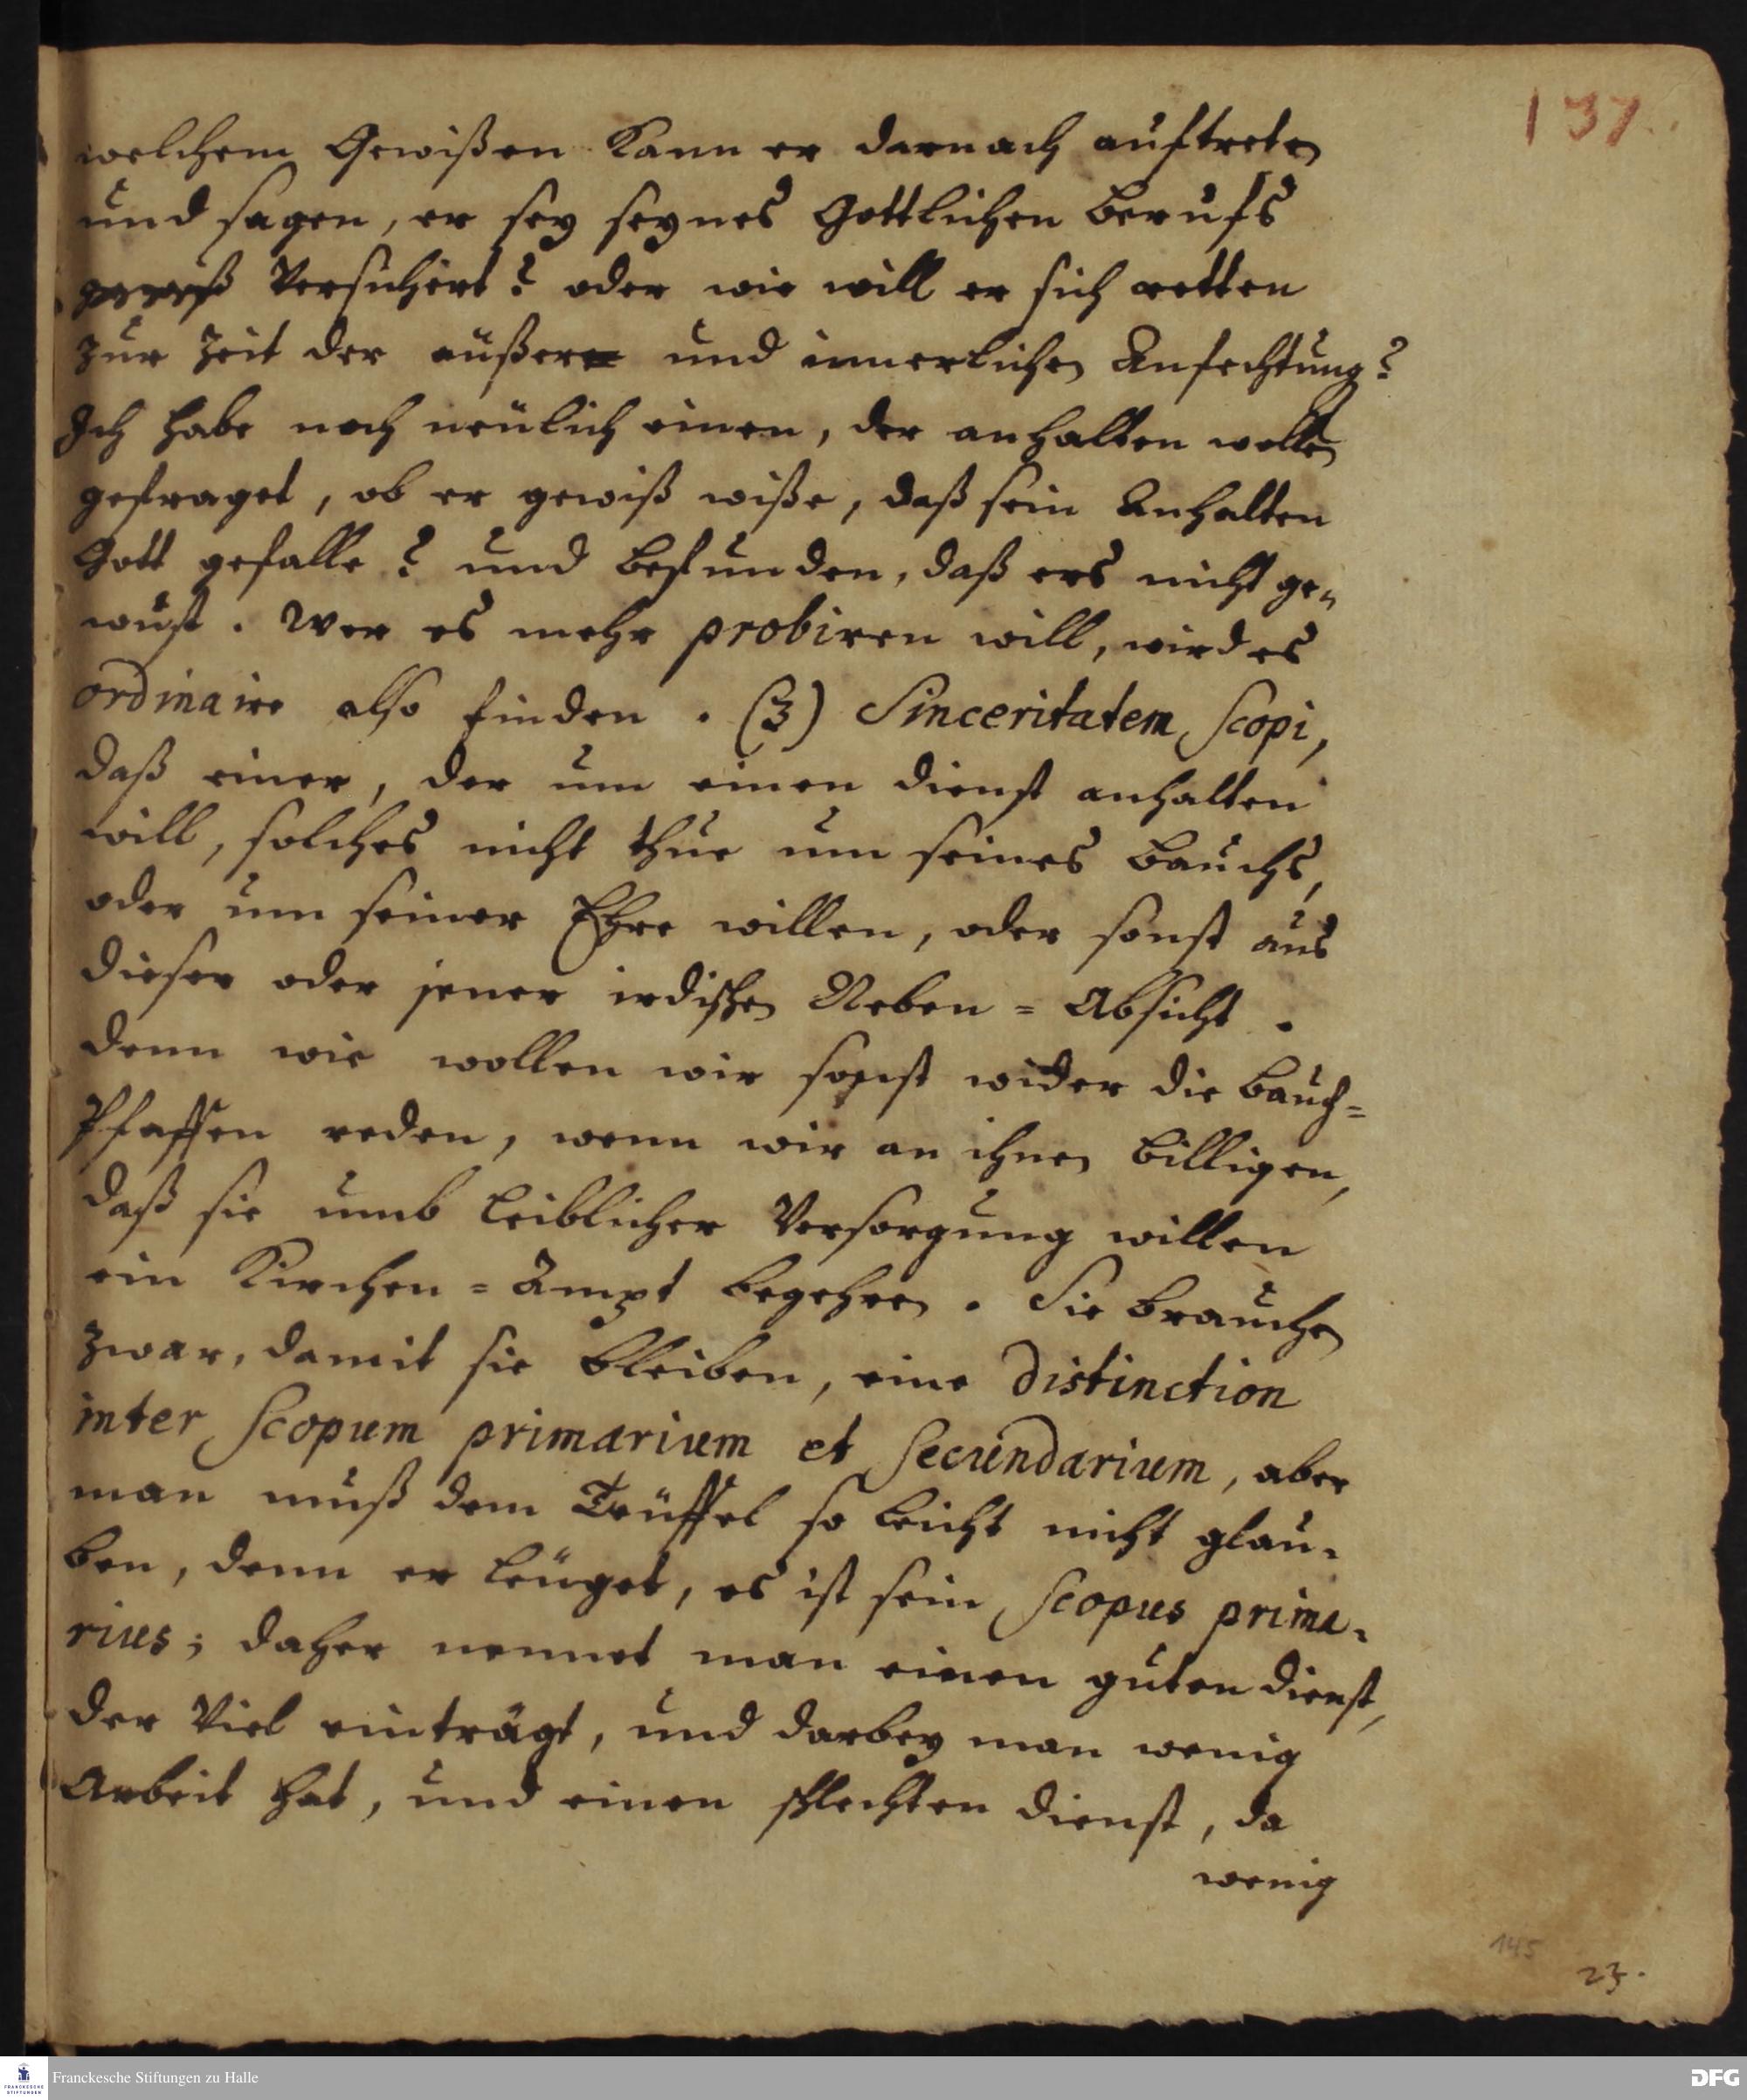 137.
welchem Gewißen kann er darnach auftreten
und sagen, er sey seynes Gottlichen Berufs
gewiß versichert? oder wie will er sich retten
zur Zeit der äußern und innerlichen Anfechtung?
Ich habe noch neülich einen, der anhalten wollte
gefraget, ob er gewiß wiße, daß sein Anhalten
Gott gefalle? und befunden, daß ers nicht ge„
wust. Wer es mehr probiren will, wird es
ordinaire also finden. (3) Sinceritatem Scopi,
daß einer, der um einen dienst anhalten
will, solches nicht thue um seines Bauchs,
oder um seiner Ehre willen, oder sonst aus
dieser oder jener irdischen Neben=Absicht.
denn wie wollen wir sonst wider die Bauch=
Pfaffen reden, wenn wir an ihnen billigen,
daß sie umb leiblicher Versorgung willen
ein Kirchen=Ampt begehren. Sie brauchen
zwar, damit sie bleiben, eine distinction
inter Scopum primarium et Secundarium, aber
man muß dem Teüffel so leicht nicht glau-
ben, denn er leüget, es ist sein Scopus prima-
rius; daher nennet man einen guten dienst,
der viel einträgt, und darbey man wenig
Arbeit hat, und einen schlechten dienst, da
wenig
145
23.
Franckesche Stiftungen zu Halle
FRANCKESCHE STIFTUNGEN
DFG